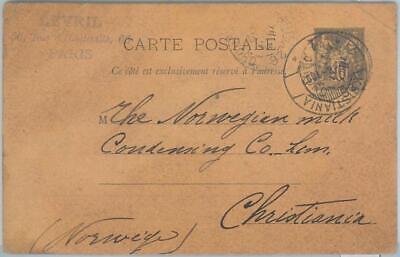 LEVRIL
PARIS
CARTE POSTALE
Ce côté est exclusivement réservé à l'adresse
CHRISTIANIA
M The Norwegian milk
Condensing Co. Lem.
Christiania
(Norwège)